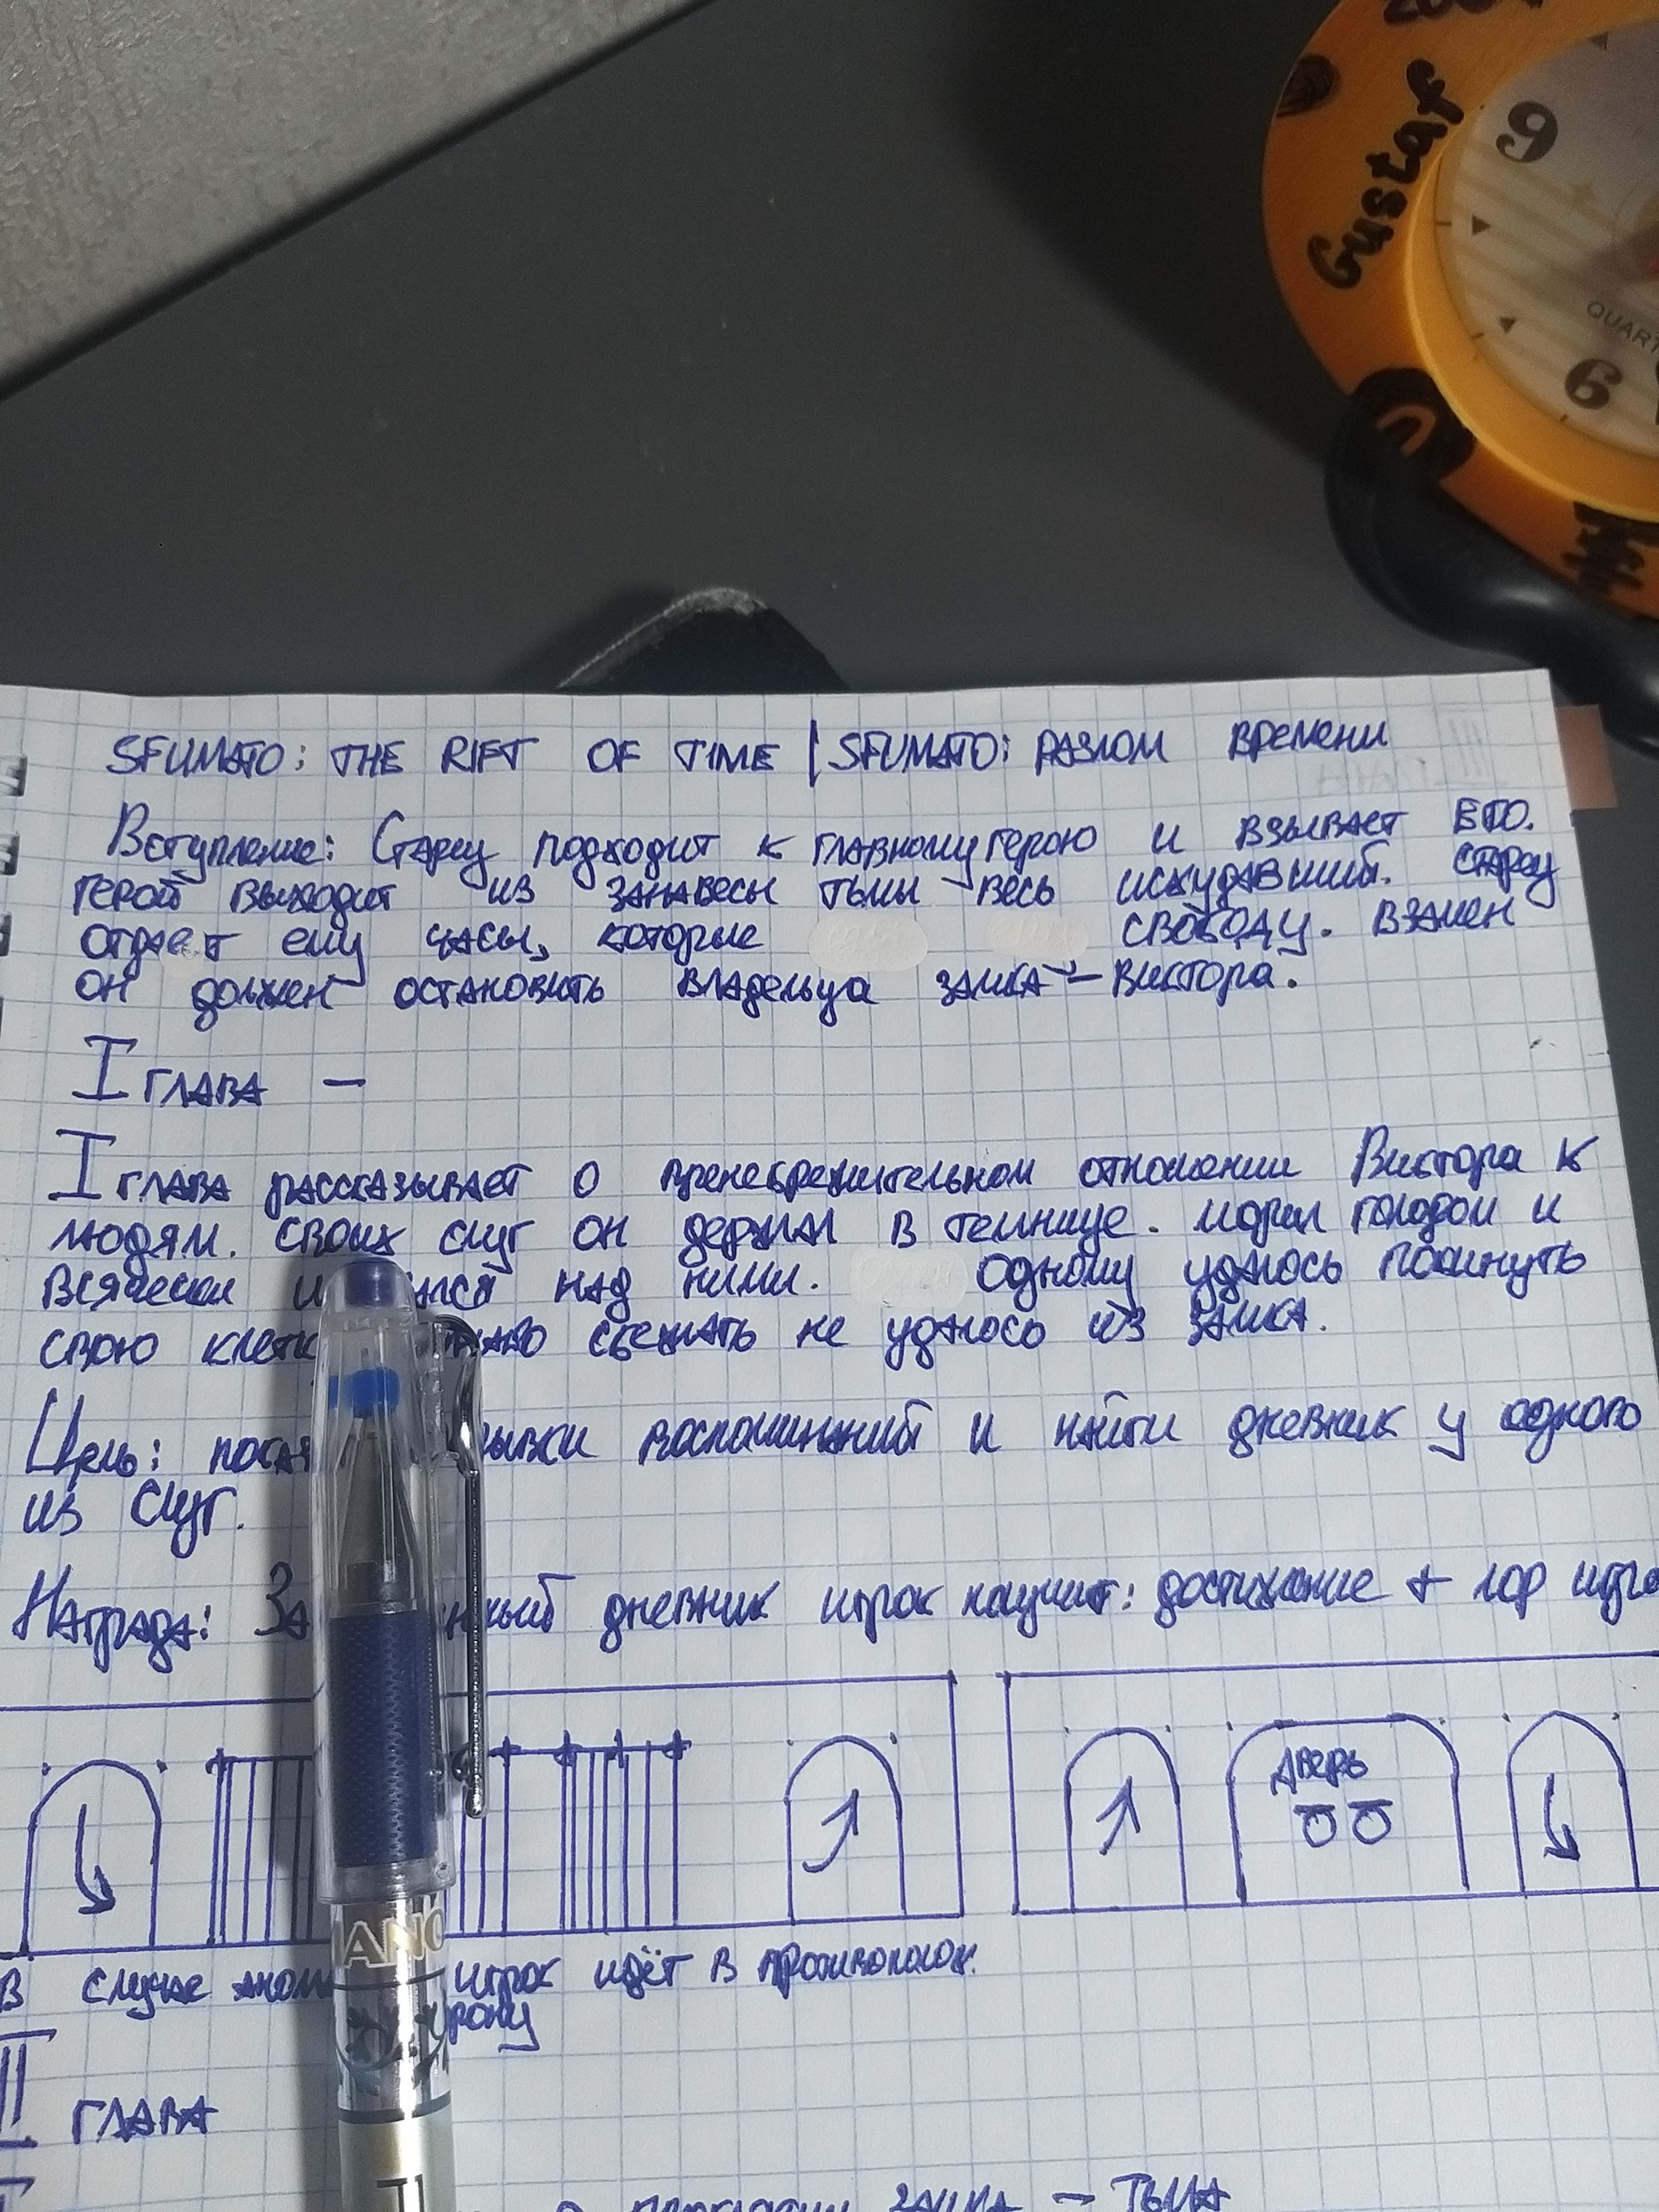 Gustaf
9
QUART
6
SFUMATO: THE RIFT OF TIME | SFUMATO: РАЗЛОМ ВРЕМЕНИ
Вступление: Старец подходит к главному герою и взывает его.
Герой выходит из занавесы тьмы весь исхудавший. Старец
отдает ему часы, которые свободу. Взамен
он должен остановить владельца замка – Виктора.
I глава –
I глава рассказывает о пренебрежительном отношении Виктора к
людям. Своих слуг он держал в темнице. Морил голодом и
всячески над ними. Одному удалось покинуть
свою сбежать не удалось из замка.
Цель: воспоминаний и найти дневник у одного
из слуг.
Награда: дневник игрок получит: достижение + лор
Дверь
В случае игрок идёт в противополож.
II глава
замка – тьма